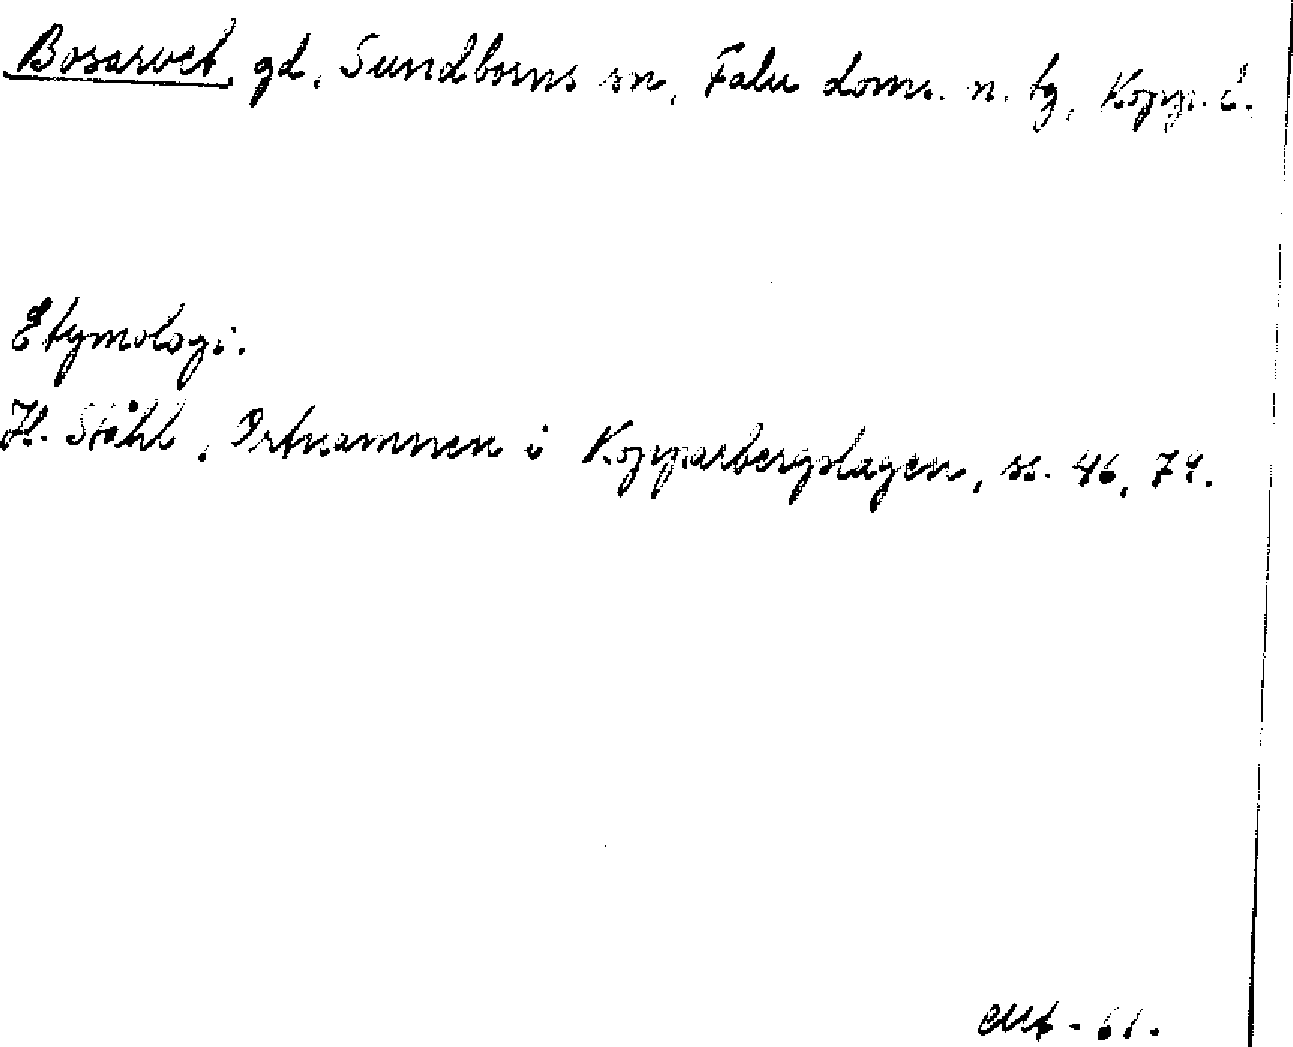 Bosarvet, gd, Sundborns sn, Falu doms. n. tg, Kopp. l.
Etymologi.
H. Ståhl, Ortnamnen i Kopparbergslagen, ss. 46, 74.
-61.